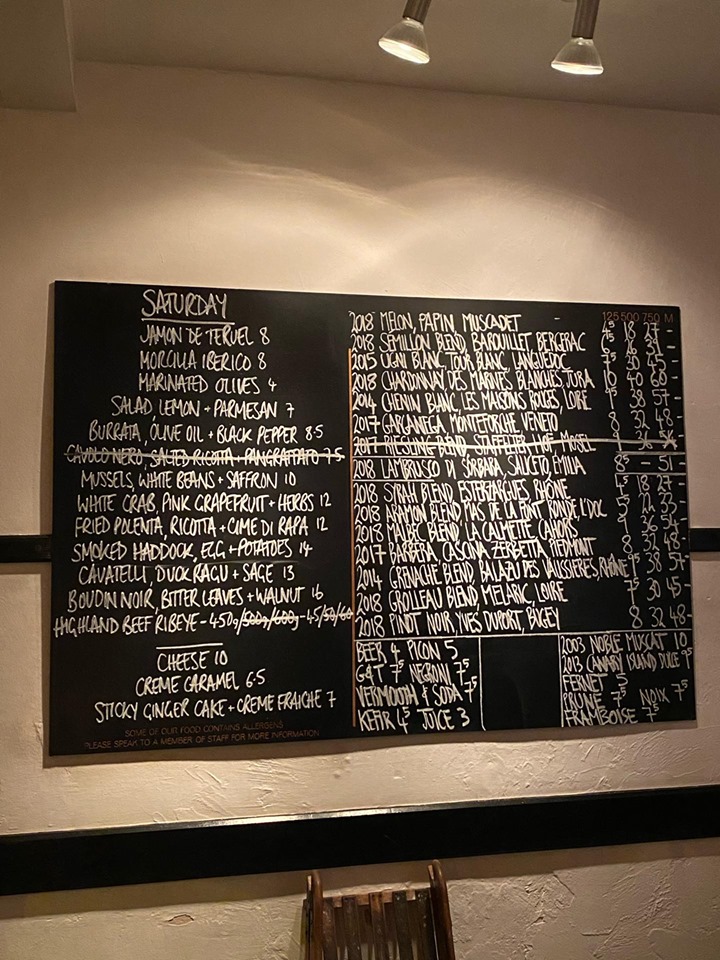 SATURDAY
JAMON DE TERUEL 8
MORCILLA IBERICO 8
MARINATED OLIVES 4
SALAD, LEMON + PARMESAN 7
BURRATA, OLIVE OIL + BLACK PEPPER 8·5
CAVOLO NERO, SALTED RICOTTA + PANGRATTATO 7·5
MUSSELS, WHITE BEANS + SAFFRON 10
WHITE CRAB, PINK GRAPEFRUIT + HERBS 12
FRIED POLENTA, RICOTTA + CIME DI RAPA 12
SMOKED HADDOCK, EGG + POTATOES 14
CAVATELLI, DUCK RAGU + SAGE 13
BOUDIN NOIR, BITTER LEAVES + WALNUT 16
HIGHLAND BEEF RIBEYE - 450g/500g/600g - 45/50/60
CHEESE 10
CREME CARAMEL 6·5
STICKY GINGER CAKE + CREME FRAICHE 7
SOME OF OUR FOOD CONTAINS ALLERGENS
PLEASE SPEAK TO A MEMBER OF STAFF FOR MORE INFORMATION
125 500 750 M
2018 MELON, PAPIN, MUSCADET 4⁵ 18 27 -
2018 SEMILLON BLEND, BAROUILLET, BERGERAC
2015 UGNI BLANC, TOUR BLANC, LANGUEDOC 7⁵ 30 45 -
2018 CHARDONNAY DES MARNES BLANCHES, JURA 10 40 60 -
2014 CHENIN BLANC, LES MAISONS ROUGES, LOIRE 9⁵ 38 57 -
2017 GARGANEGA, MONTEFORCHE, VENETO 8 32 48 -
2017 RIESLING BLEND, STAFFELTER HOF, MOSEL
2018 LAMBRUSCO DI SORBARA, SALICETO, EMILIA 8⁵ - 51 -
2018 SYRAH BLEND, ESTEZARGUES, RHÔNE 4⁵ 18 27 -
2018 ARAMON BLEND MAS DE LA FONT RONDE, L'DOC
2018 MALBEC BLEND, LA CALMETTE, CAHORS 9 36 54 -
2017 BARBERA, CASCINA ZERBETTA, PIEDMONT 8 32 48 -
2014 GRENACHE BLEND, BALAZU DES VAUSSIERES, RHÔNE 9⁵ 38 57 -
2018 GROLLEAU BLEND, MELARIC, LOIRE 7⁵ 30 45 -
2018 PINOT NOIR YVES DUPORT, BUGEY 8 32 48 -
BEER 4 PICON 5
G&T 7⁵ NEGRONI 7⁵
VERMOUTH & SODA 7⁵
KEFIR 4⁵ JUICE 3
2003 NOBLE MUSCAT 10
2013 CANARY ISLAND DULCE 9⁵
FERNET 5
PRUNE 7⁵ NOIX 7⁵
FRAMBOISE 7⁵